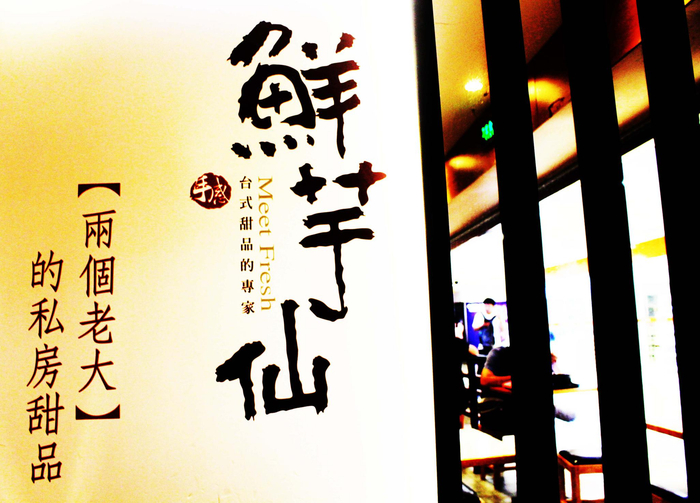 鮮芋仙
Meet Fresh
台式甜品的專家
手感
【兩個老大】
的私房甜品